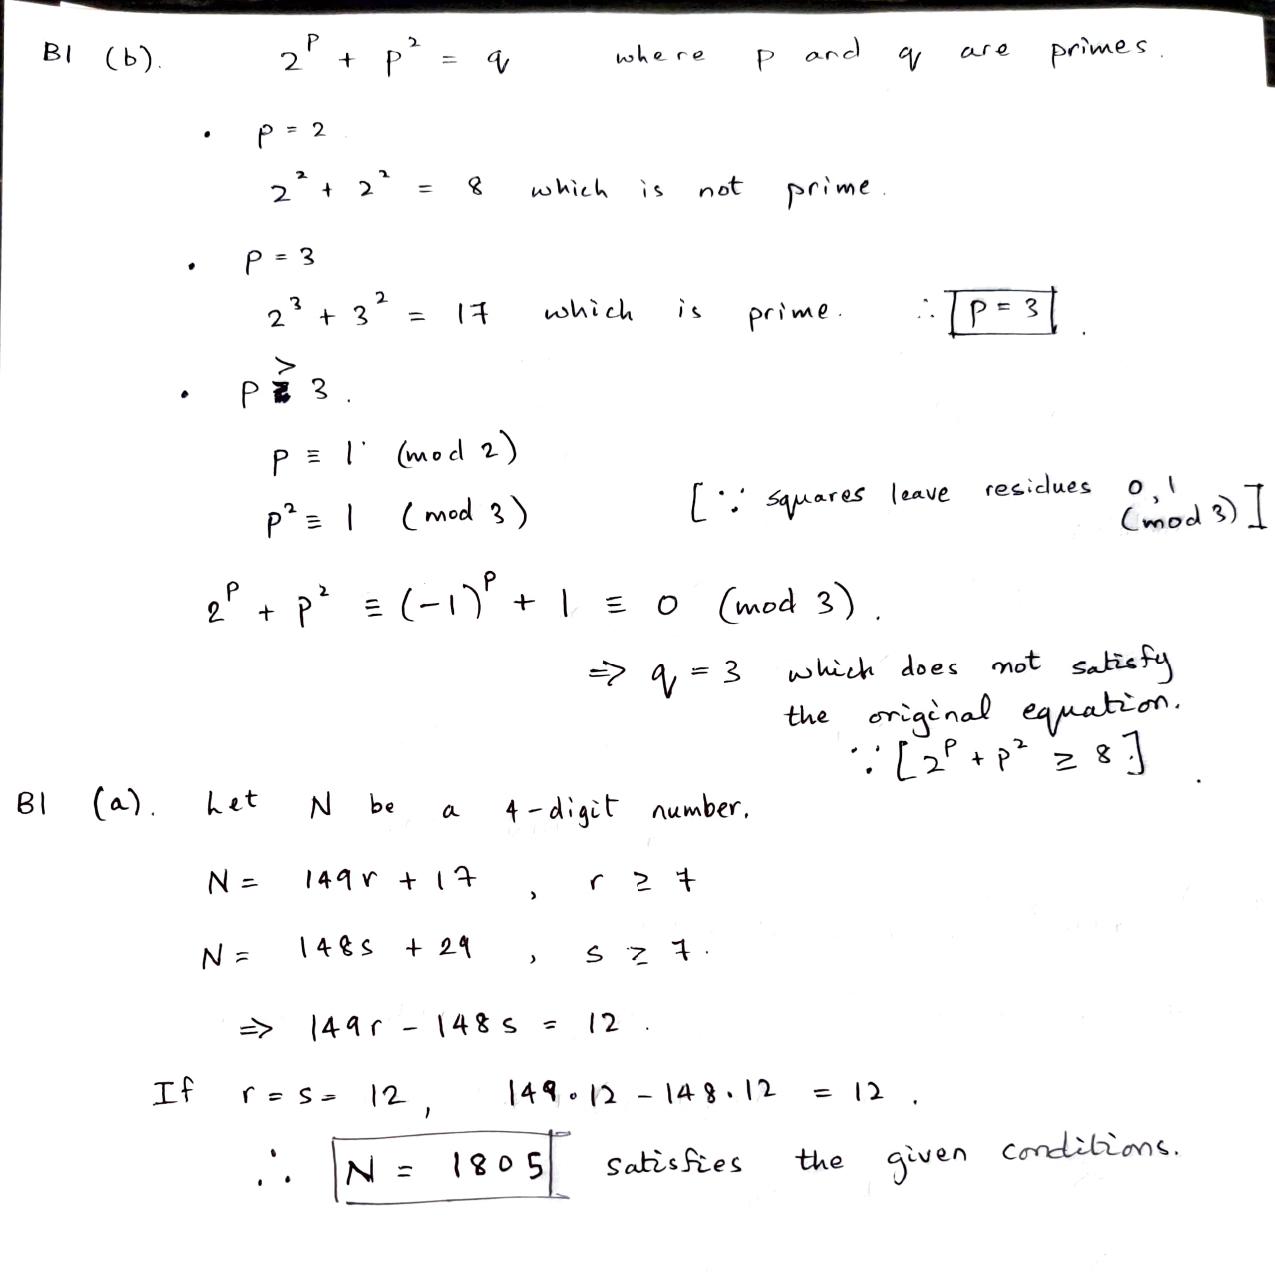 B1 (b). 2^p + p² = q where p and q are primes.
• p = 2
2² + 2² = 8 which is not prime.
• p = 3
2³ + 3² = 17 which is prime. ∴ p = 3.
• p > 3.
p ≡ 1 (mod 2)
p² ≡ 1 (mod 3) [∵ squares leave residues 0, 1 (mod 3)]
2^p + p² ≡ (-1)^p + 1 ≡ 0 (mod 3).
⇒ q = 3 which does not satisfy
the original equation.
∵ [2^p + p² ≥ 8].
B1 (a). Let N be a 4-digit number.
N = 149r + 17, r ≥ 7
N = 148s + 29, s ≥ 7.
⇒ 149r - 148s = 12.
If r = s = 12, 149·12 - 148·12 = 12.
∴ N = 1805 satisfies the given conditions.